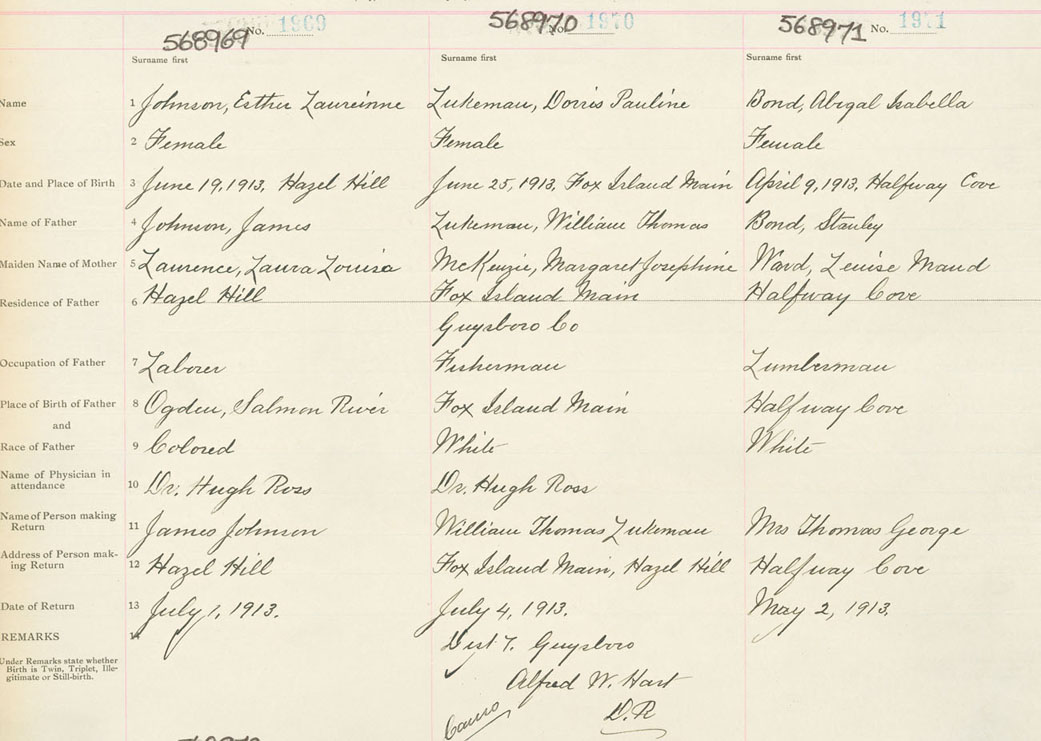 568969 No. 1969 568970 No. 1970 568971 No. 1971
Surname first Surname first Surname first
Name 1 Johnson, Esther Laureinne Lukeman, Dorris Pauline Bond, Abigal Isabella
Sex 2 Female Female Female
Date and Place of Birth 3 June 19, 1913, Hazel Hill June 25, 1913, Fox Island Main April 9, 1913, Halfway Cove
Name of Father 4 Johnson, James Lukeman, William Thomas Bond, Stanley
Maiden Name of Mother 5 Laurence, Laura Louisa McKenzie, Margaret Josephine Ward, Leuise Maud
Residence of Father 6 Hazel Hill Fox Island Main Halfway Cove
Guysboro Co
Occupation of Father 7 Laborer Fisherman Lumberman
Place of Birth of Father 8 Ogden, Salmon River Fox Island Main Halfway Cove
and
Race of Father 9 Colored White White
Name of Physician in
attendance 10 Dr. Hugh Ross Dr. Hugh Ross
Name of Person making
Return 11 James Johnson William Thomas Lukeman Mrs Thomas George
Address of Person mak-
ing Return 12 Hazel Hill Fox Island Main, Hazel Hill Halfway Cove
Date of Return 13 July 1, 1913. July 4, 1913. May 2, 1913.
REMARKS 14 Dist 7. Guysboro
Under Remarks state whether
Birth is Twin, Triplet, Ille-
gitimate or Still-birth.
Alfred W. Hart
Canso D.R